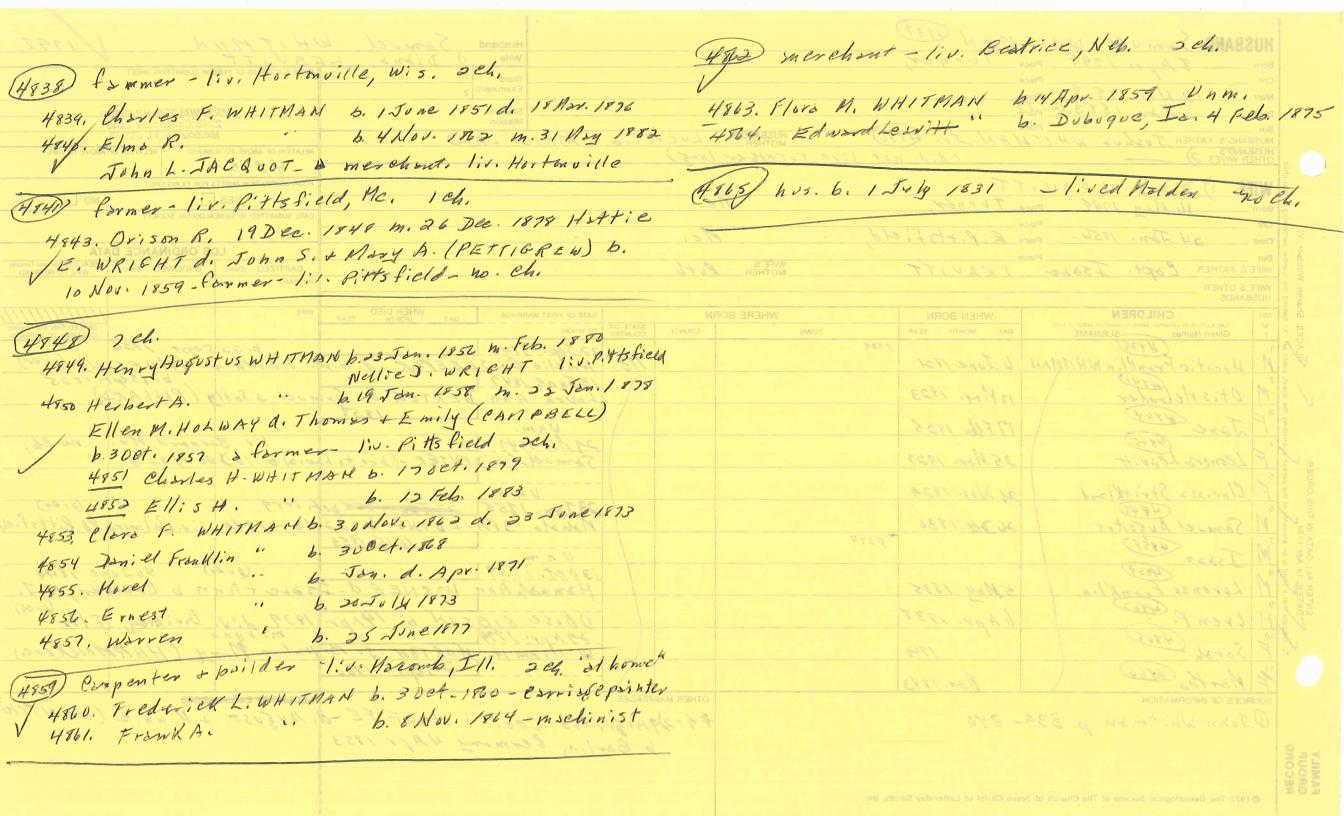 4838 farmer - liv. Hortonville, Wis. 2ch.
4839. Charles F. WHITMAN b. 1 June 1851 d. 18 Mar. 1876
4840. Elma R. " b. 4 Nov. 1862 m. 31 May 1882
John L. JACQUOT - a merchant. liv. Hortonville
4841 farmer - liv. Pittsfield, Me. 1ch.
4843. Orison R. 19 Dec. 1848 m. 26 Dec. 1878 Hattie
E. WRIGHT d. John S. + Mary A. (PETTIGREW) b.
10 Nov. 1859 - farmer - liv. Pittsfield - no. ch.
4848 7 ch.
4849. Henry Augustus WHITMAN b. 23 Jan. 1856 m. Feb. 1880
Nellie J. WRIGHT liv. Pittsfield
4850 Herbert A. " b. 19 Jan. 1858 m. 22 Jan. 1878
Ellen M. HOLWAY d. Thomas + Emily (CAMPBELL)
b. 3 Oct. 1857 a farmer - liv. Pittsfield 2ch.
4851 Charles H. WHITMAN b. 17 Oct. 1879
4852 Ellis H. " b. 12 Feb. 1883
4853. Clara F. WHITMAN b. 30 Nov. 1862 d. 23 June 1873
4854 Daniel Franklin " b. 30 Oct. 1868
4855. Havel " b. Jan. d. Apr. 1871
4856. Ernest " b. 20 July 1873
4857. Warren " b. 25 June 1877
4859 Carpenter + builder - liv. Macomb, Ill. 2 ch. "at home"
4860. Frederick L. WHITMAN b. 3 Oct. 1860 - carriage painter
4861. Frank A. " b. 8 Nov. 1864 - machinist
4862 merchant - liv. Beatrice, Neb. 2ch.
4863. Flora M. WHITMAN b. 14 Apr. 1859 Unm.
4864. Edward Leavitt " b. Dubuque, Ia. 4 Feb. 1875
4865 hus. b. 1 July 1831 - lived Malden - no ch.